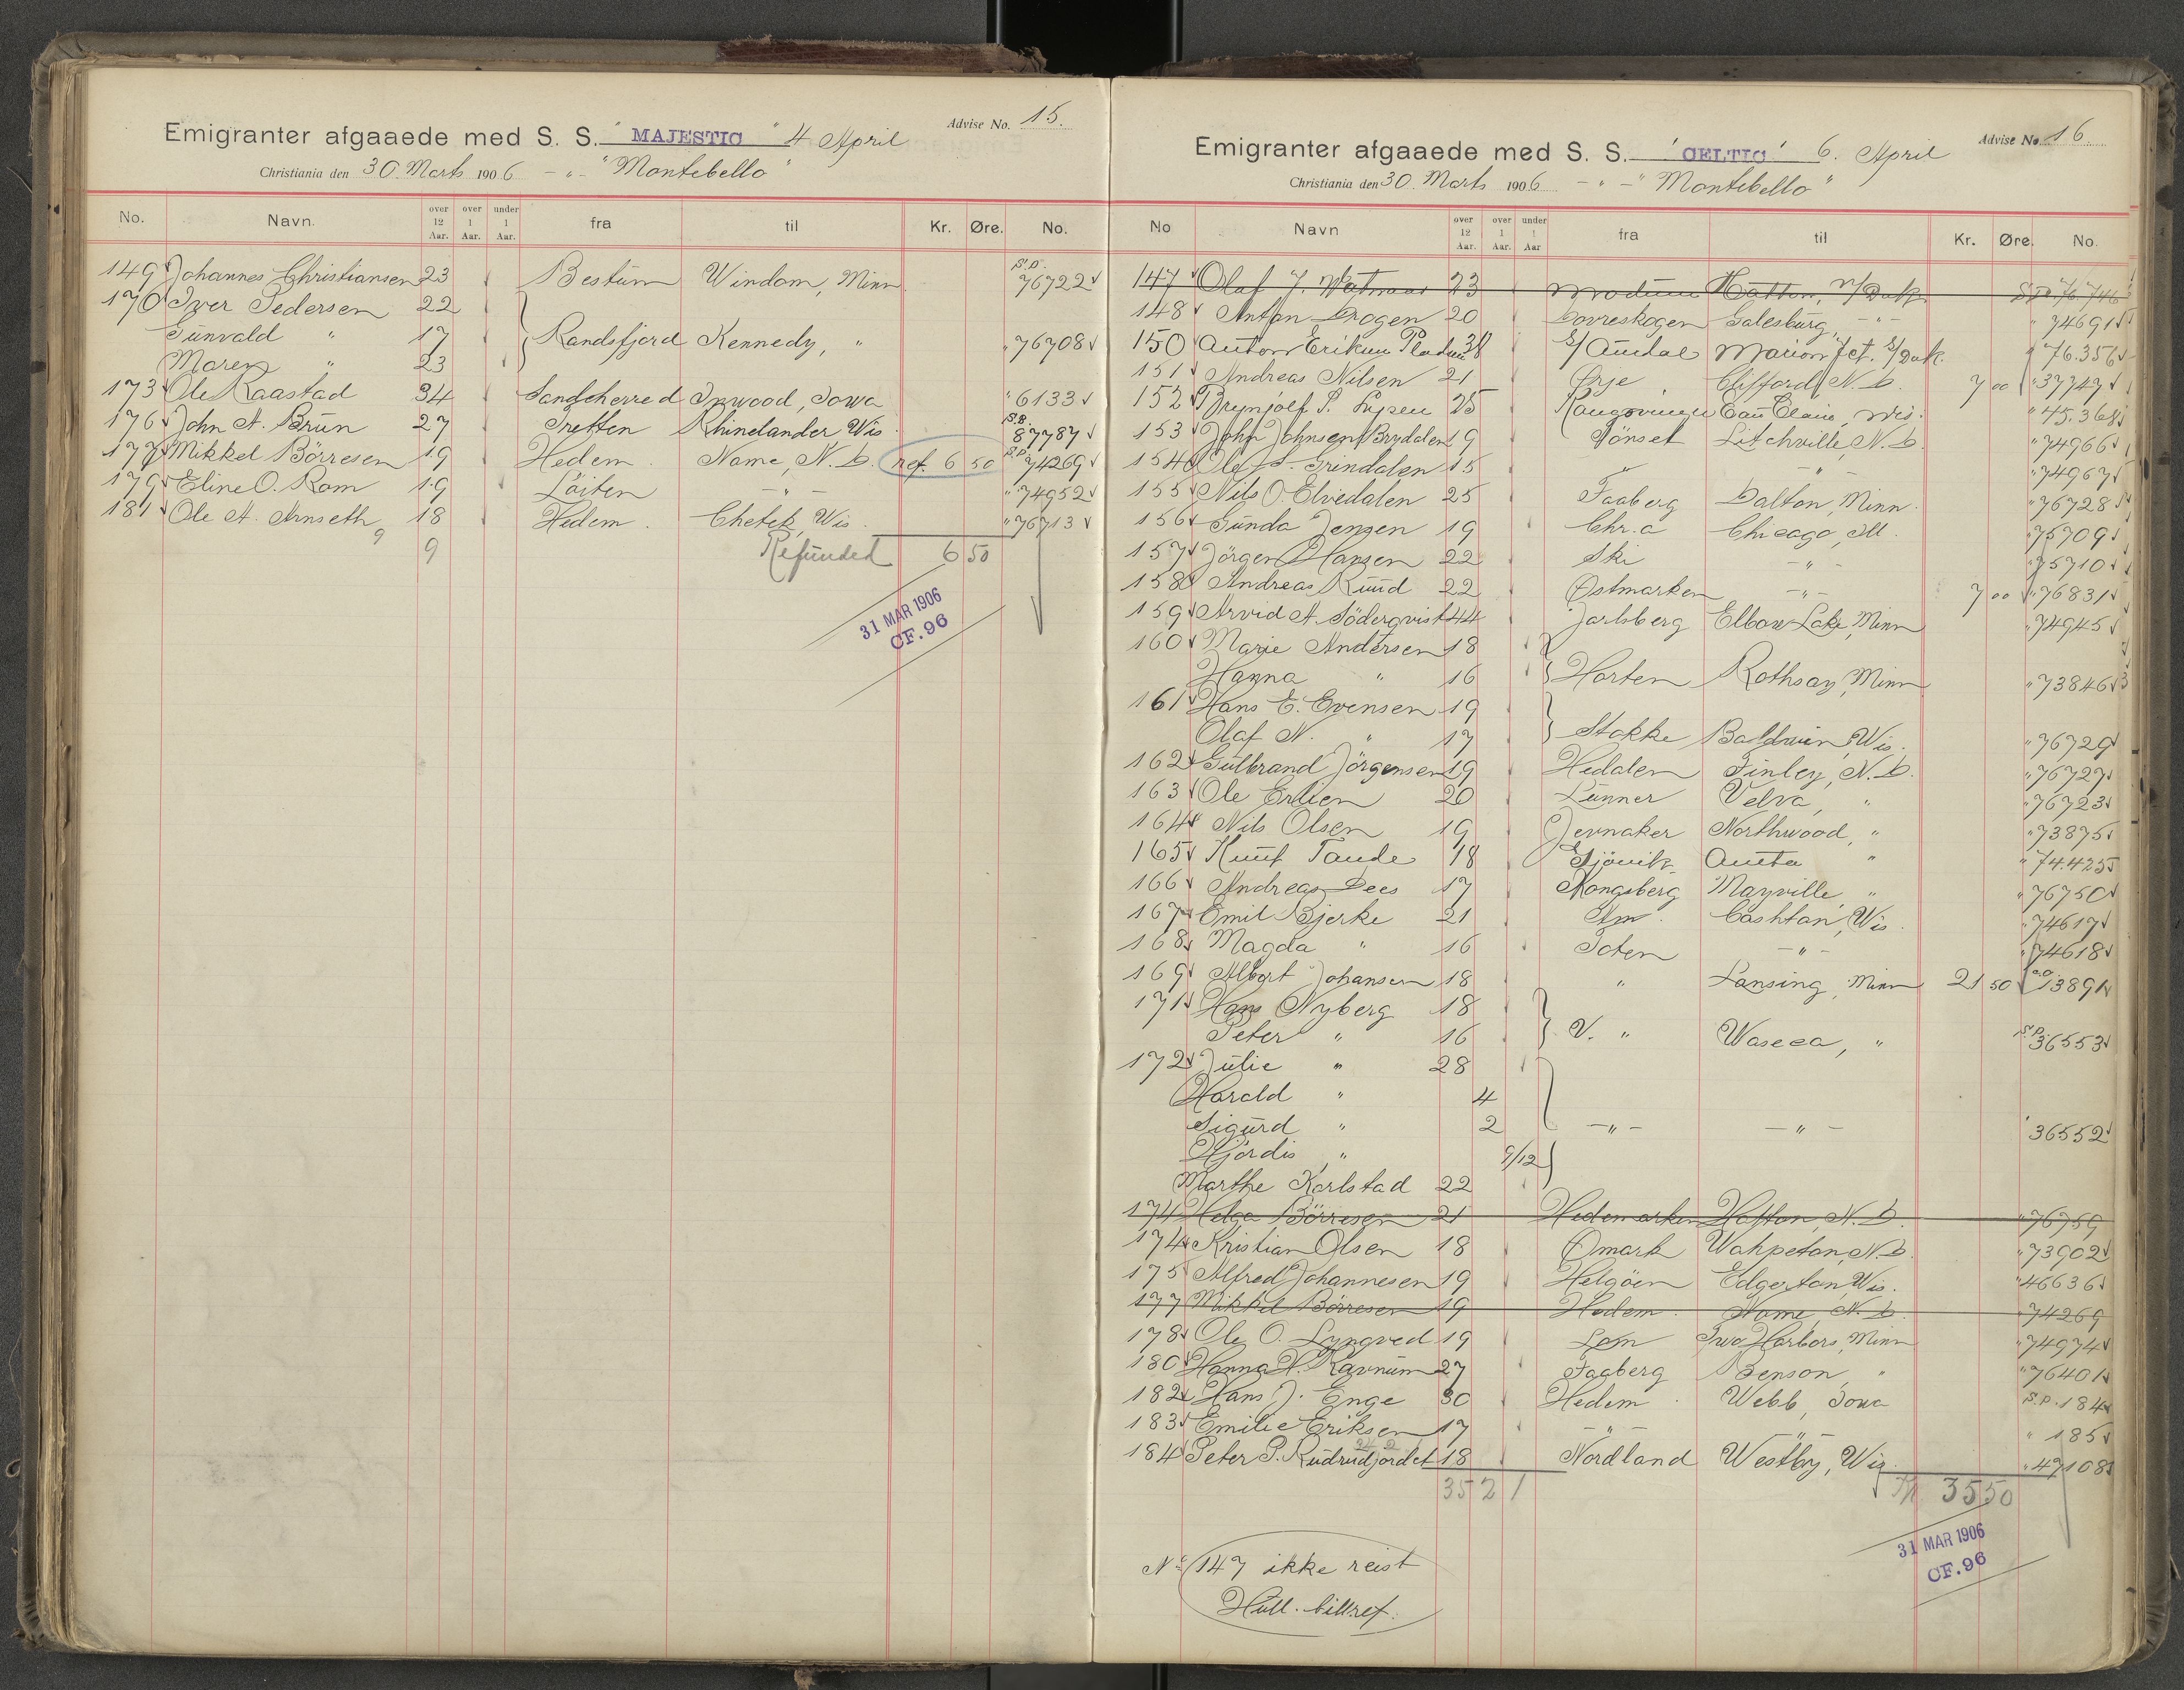 Advise No. 15.
Emigranter afgaaede med S. S. "MAJESTIC" 4 April
Christiania den 30. Marts 1906 - " - "Montebello"
No. Navn. over 12 Aar. over 1 Aar. under 1 Aar. fra til Kr. Øre. No.
149 Johannes Christiansen 23 Bestum Windom, Minn S.P. 76722
170 Iver Pedersen 22
Gunvald " 17 Randsfjord Kennedy, " " 76708
Maren " 23
173 Ole Raastad 34 Sandeherred Inwood, Iowa " 6133
176 John A. Brun 27 Tretten Rhinelander Wis. S.B. 87787
177 Mikkel Börresen 19 Hedem. Nome, N.D. ref. 6 50 S.P. 74269
179 Eline O. Rom 19 Löiten - " - " 74952
181 Ole A. Arnseth 18 Hedem. Chetek, Wis. " 76713
9 9 Refunded 6 50
31 MAR 1906
CF. 96
Advise No. 16.
Emigranter afgaaede med S. S. "CELTIC" 6. April
Christiania den 30. Marts 1906 - " - "Montebello"
No Navn over 12 Aar. over 1 Aar. under 1 Aar fra til Kr. Øre. No.
147 Olaf J. 23 Modum Hatton, N/Dak. 76.746
148 Anton Drogen 20 Dovreskogen Galesburg, - " - " 74691
150 Anton Eriksen 38 S/Aurdal Marion Jct. S/Dak. " 76.356
151 Andreas Nilsen 21 Ørje Clifford, N.D. 7 00 " 37747
152 Brynjolf P. 25 Kongsvinger Eau Claire, Wis. " 45.368
153 John Johnsen Brydalen 19 Tönset Litchville, N.D. " 74966
154 Ole J. Grindalen 15 " - " - " 74967
155 Nils O. Elvedalen 25 Faaberg Dalton, Minn. " 76728
156 Gunda Jensen 19 Chr.a Chicago, Ill. " 75709
157 Jörgen Hansen 22 Ski - " - " 75710
158 Andreas Ruud 22 Østmarken - " - 7 00 " 76831
159 Arvid A. Söderqvist 44 Jarlsberg Elbow Lake, Minn " 74945
160 Marie Andersen 18
Hanna " 16 Horten Rothsay, Minn " 73846
161 Hans E. Evensen 19
Olaf N. " 17 Stokke Baldwin, Wis. " 76729
162 Gulbrand Jörgensen 19 Hedalen Finley, N.D. " 76727
163 Ole Erlien 20 Lunner Velva, " " 76723
164 Nils Olsen 19 Jevnaker Northwood, " " 73875
165 Knut Tande 18 Gjövik Aneta " " 74.425
166 Andreas Dees 17 Kongsberg Mayville, " " 76750
167 Emil Bjerke 21 Am. Cashton, Wis. " 74617
168 Magda " 16 Toten - " - " 74618
169 Albert Johansen 18 " Lansing, Minn 21 50 13891
171 Hans Nyberg 18
Peter " 16 V. " Waseca, " S.P. 36553
172 Julie " 28
Harald " 4
Sigurd " 2 - " - - " - " 36552
Hjördis " 9/12
Marthe Karlstad 22
174 Helga Börresen 21 Hedemarken Hatton, N.D. " 76759
174 Kristian Olsen 18 Ømark Wahpeton, N.D. " 73902
175 Alfred Johannesen 19 Helgöen Edgerton, Wis. " 46636
177 Mikkel Börresen 19 Hedem. Nome, N.D. " 74269
178 Ole O. Lyngved 19 Lom Two Harbors, Minn " 74974
180 Hanna H. Ravnum 27 Faaberg Benson, " " 76401
182 Hans J. Enge 30 Hedem. Webb, Iowa S.P. 184
183 Emilie Eriksen 17 - " - - " - " 185
184 Peter P. Rudrudjordet 18 Nordland Westby, Wis. " 47108
35 2 1 35 50
31 MAR 1906
CF. 96
No 147 ikke reist
Hull. billref.